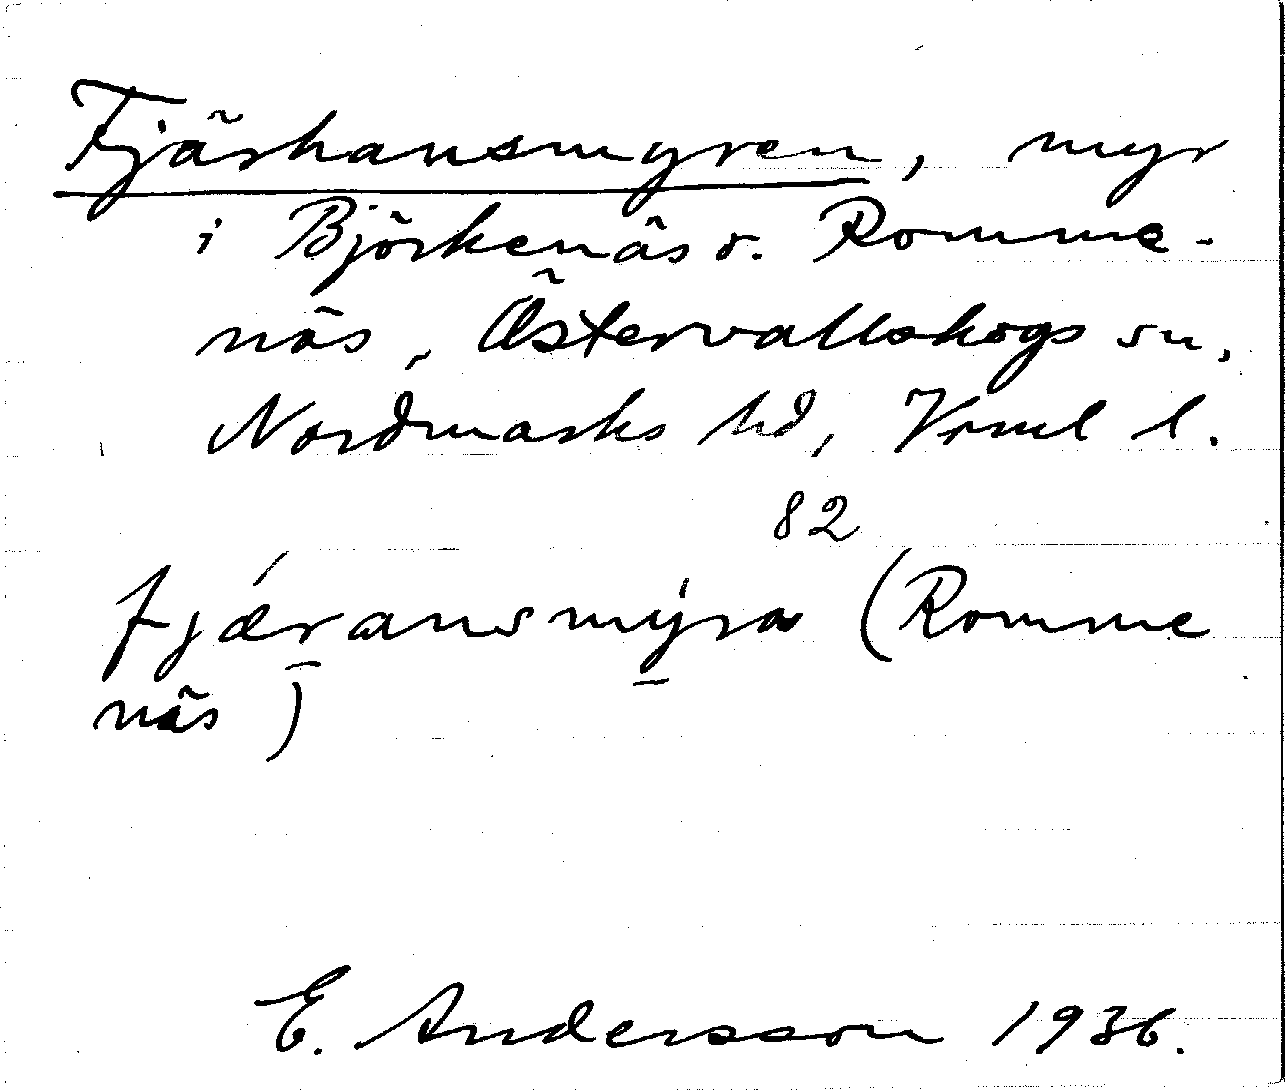 Fjärhansmyren, myr
i Björkenäs o. Romme-
näs, Östervallskogs sn,
Nordmarks hd, Vrml l.
82
fjæransmýra (Romme
näs)
E. Andersson 1936.